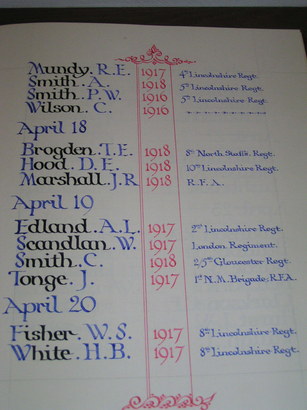 Mundy. R.E. 1917 4th Lincolnshire Regt.
Smith. A. 1918 5th Lincolnshire Regt.
Smith. P.W. 1916 5th Lincolnshire Regt.
Wilson. C. 1916
April 18
Brogden. T.E. 1918 8th North Staffs. Regt.
Hood. D.E. 1918 10th Lincolnshire Regt.
Marshall. J.R 1918 R.F.A.
April 19
Edland. A.L. 1917 2nd Lincolnshire Regt.
Scandlan. W. 1917 London Regiment.
Smith. C. 1918 2/5th Gloucester Regt.
Tonge. J. 1917 1st N.M. Brigade, R.F.A.
April 20
Fisher. W.S. 1917 8th Lincolnshire Regt.
White. H.B. 1917 8th Lincolnshire Regt.